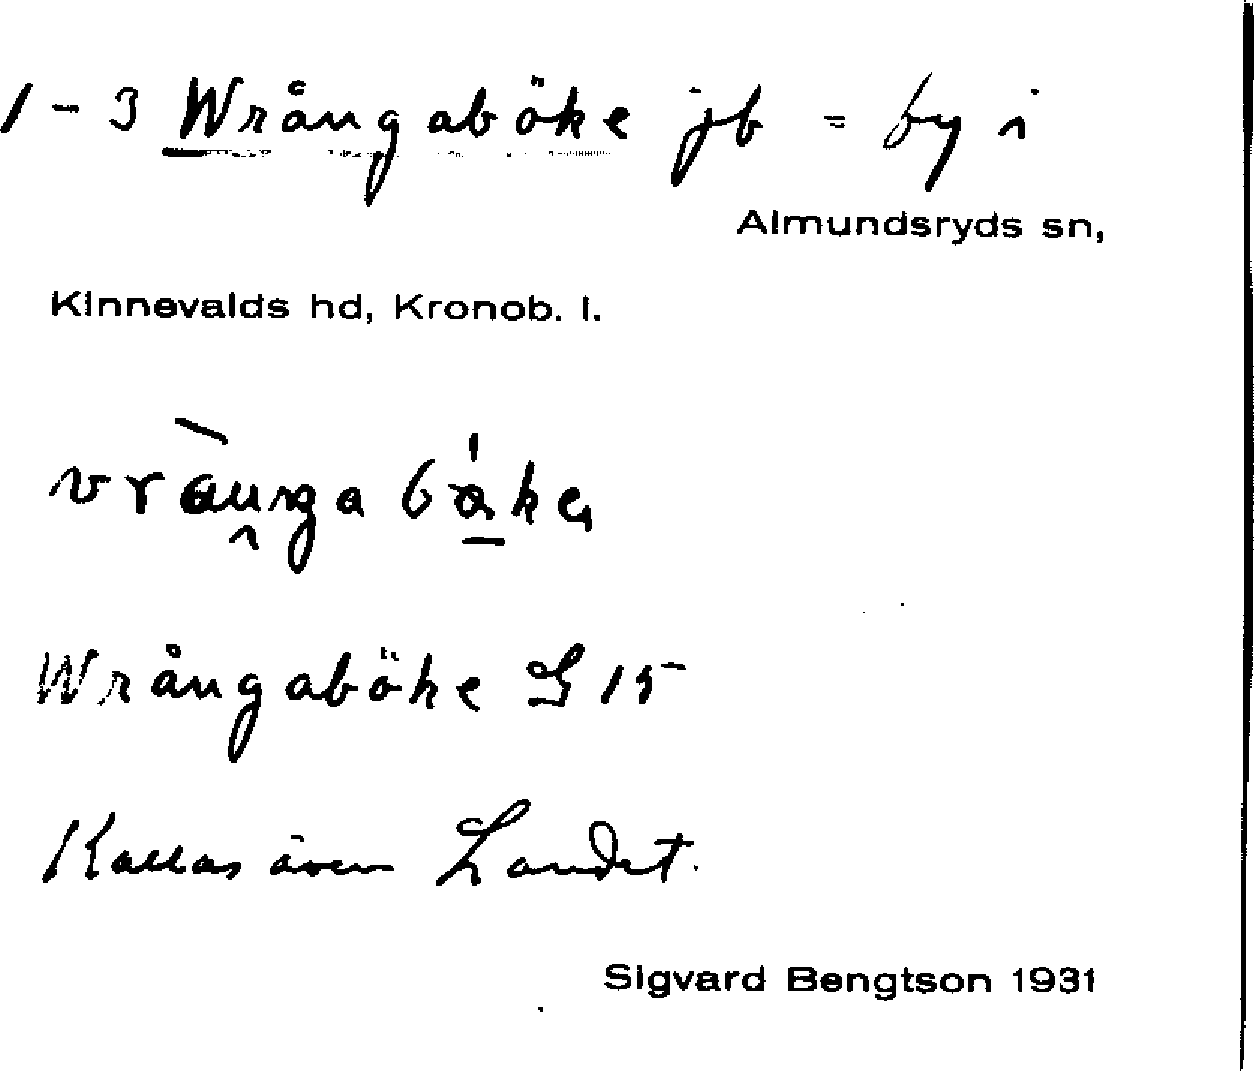 1-3 Wrångaböke jb = by i
Almundsryds sn,
Kinnevalds hd, Kronob. l.
Wrångaböke S 15
Kallas även Landet.
Sigvard Bengtson 1931